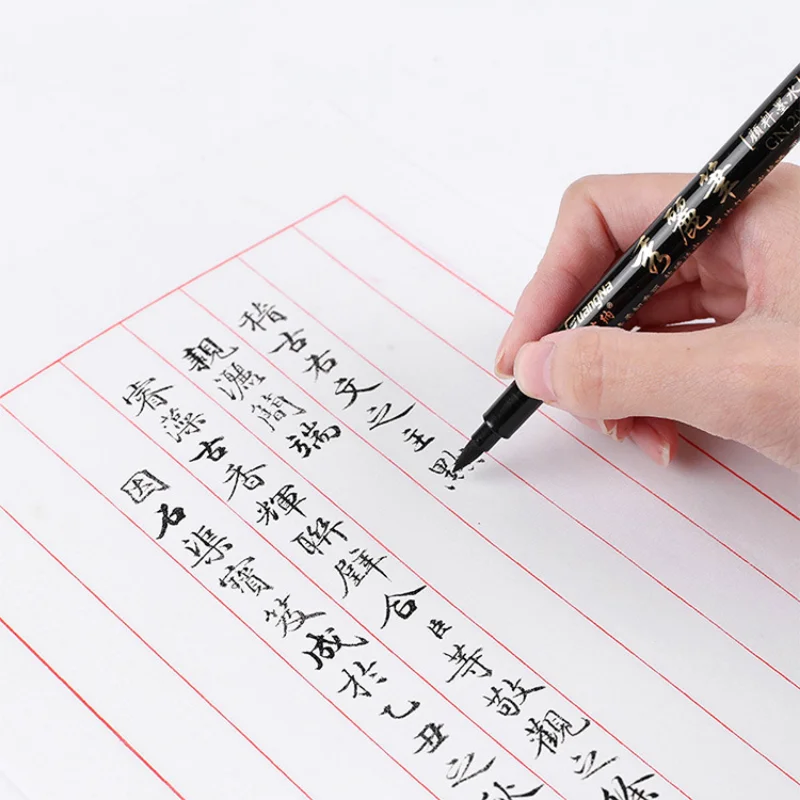 稽古右文之主
親灑簡端
睿藻古香輝聯璧合臣等敬觀之餘
因石渠寶笈成於乙丑之秋
秀麗筆
GuangNa
颜料墨水